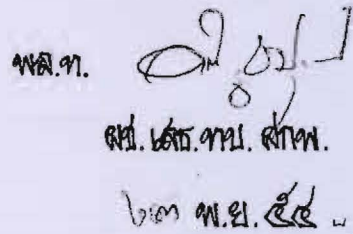 พล.ท.
ผช.เสธ.ทบ.ฝกพ.
๒๓ พ.ย. ๕๔